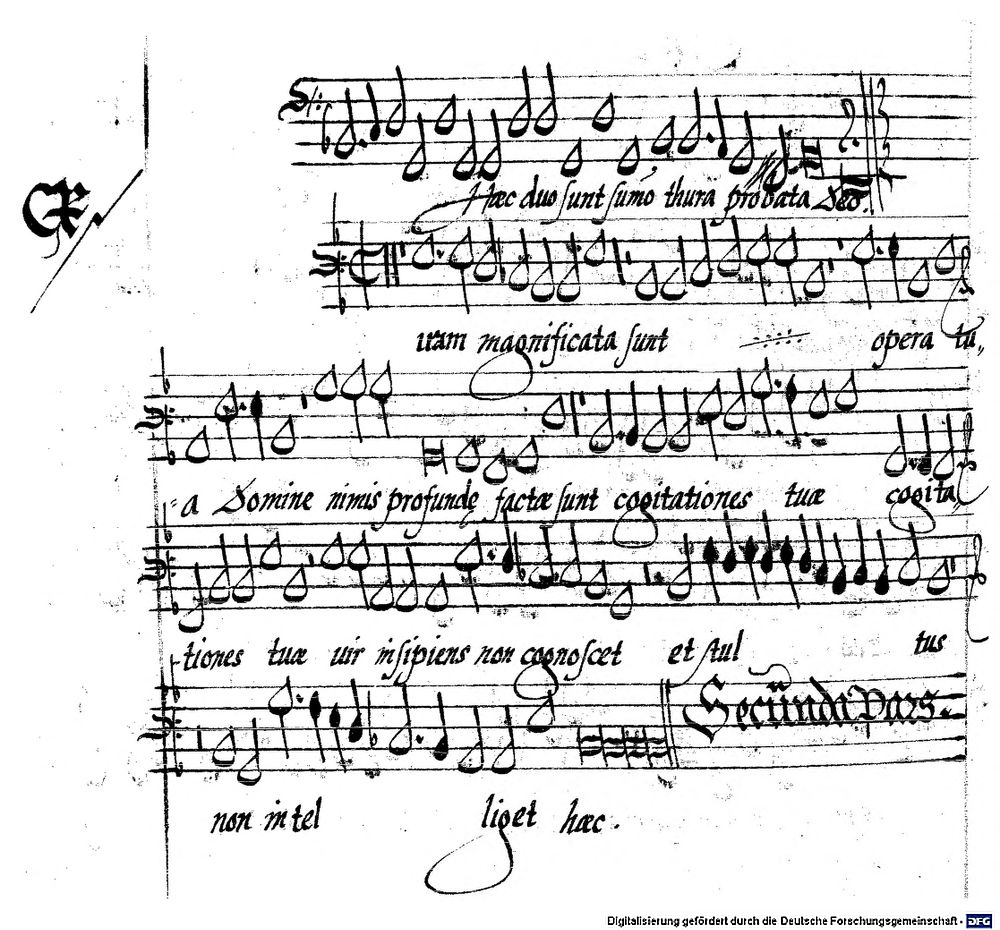 Hæc duo sunt sum̃o thura probata Deo.
uram magnificata sunt opera tu,,
,,a Domine nimis profunde factæ sunt cogitationes tuæ cogita,,
tiones tuæ uir insipiens non cognoscet et stul tus
Secũnda Pars.
non intel liget hæc.
Digitalisierung gefördert durch die Deutsche Forschungsgemeinschaft - DFG